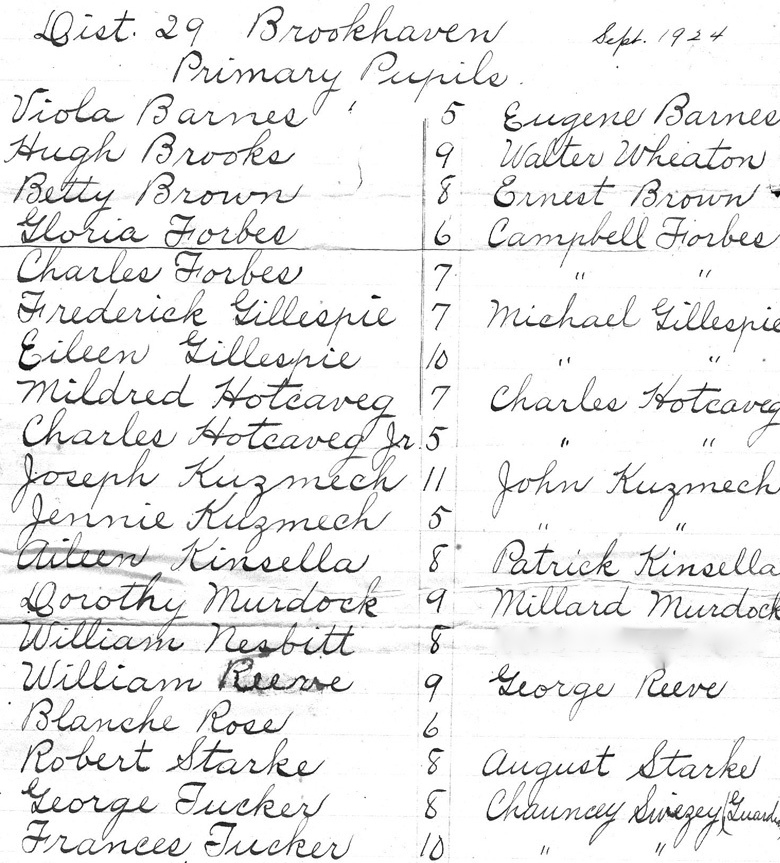 Dist. 29 Brookhaven Sept. 1924
Primary Pupils.
Viola Barnes 5 Eugene Barnes
Hugh Brooks 9 Walter Wheaton
Betty Brown 8 Ernest Brown
Gloria Forbes 6 Campbell Forbes
Charles Forbes 7 " "
Frederick Gillespie 7 Michael Gillespie
Eileen Gillespie 10 " "
Mildred Hotcaveg 7 Charles Hotcaveg
Charles Hotcaveg Jr. 5 " "
Joseph Kuzmech 11 John Kuzmech
Jennie Kuzmech 5 " "
Aileen Kinsella 8 Patrick Kinsella
Dorothy Murdock 9 Millard Murdock
William Nesbitt 8
William Reeve 9 George Reeve
Blanche Rose 6
Robert Starke 8 August Starke
George Tucker 8 Chauncey Swezey (Guardi
Frances Tucker 10 " "